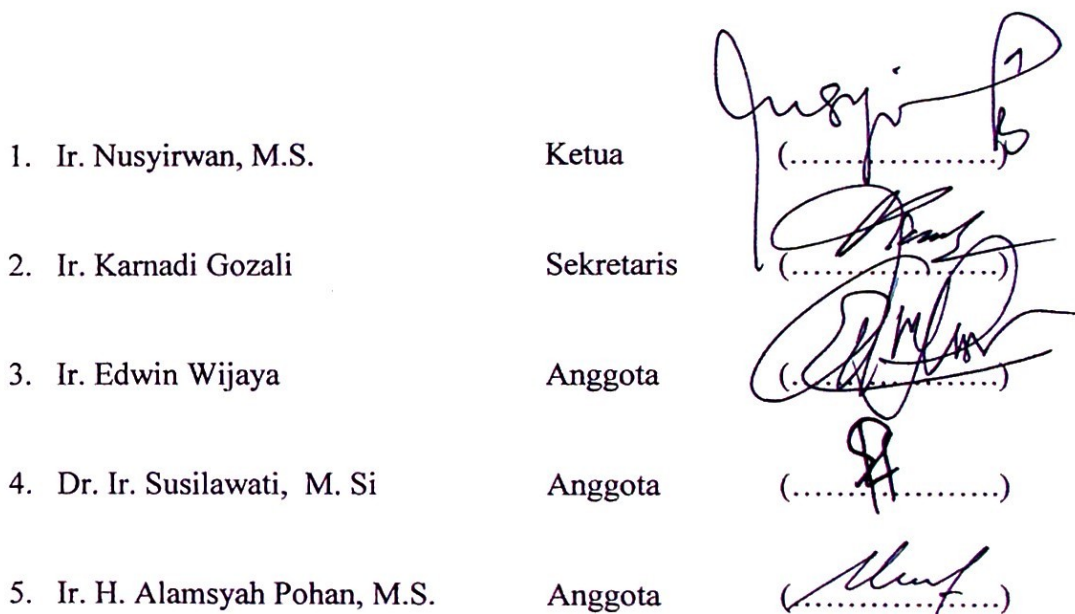 1. Ir. Nusyirwan, M.S. Ketua (....................)
2. Ir. Karnadi Gozali Sekretaris (....................)
3. Ir. Edwin Wijaya Anggota (....................)
4. Dr. Ir. Susilawati, M. Si Anggota (....................)
5. Ir. H. Alamsyah Pohan, M.S. Anggota (....................)